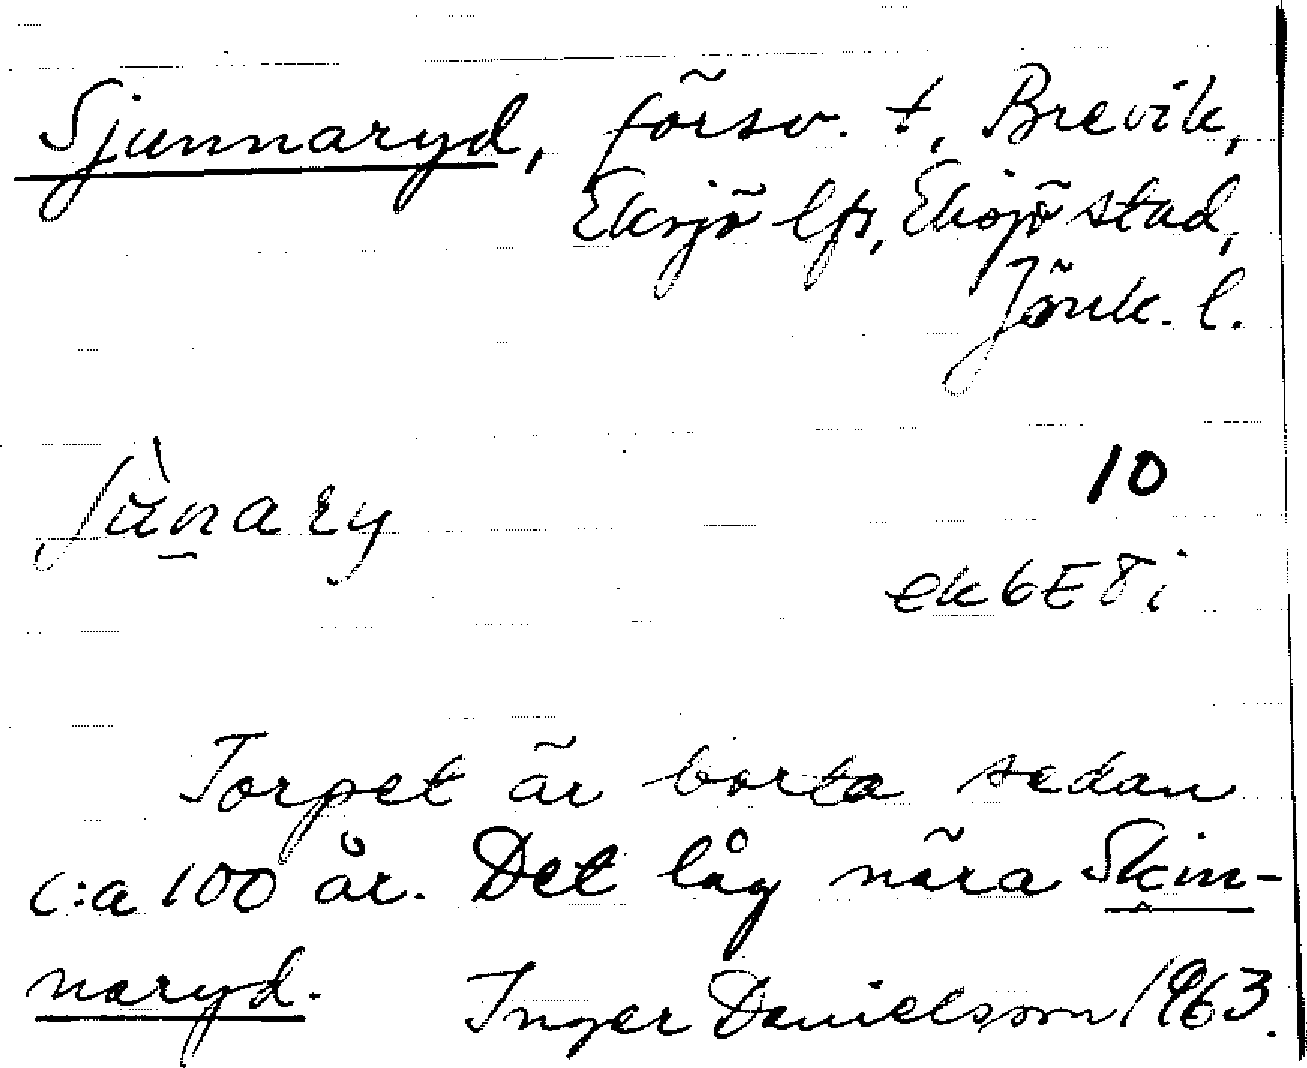 Sjunnaryd, försv. t, Brevik,
Eksjö lfs, Eksjö stad,
Jönk. l.
10
Torpet är borta sedan
c:a 100 år. Det låg nära Skin-
naryd. Inger Danielsson 1963.